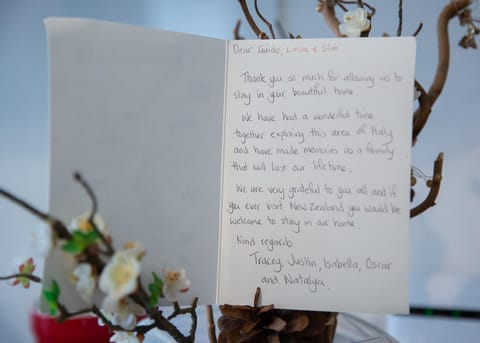 Dear, Guido, Linda & Silvio
Thank you so much for allowing us to
stay in your beautiful home.
We have had a wonderful time
together exploring this area of Italy
and have made memories as a family
that will last our lifetime.
We are very grateful to you all and if
you ever visit New Zealand you would be
welcome to stay in our home.
Kind regards
Tracey, Justin, Isabella, Oscar
and Natalya.